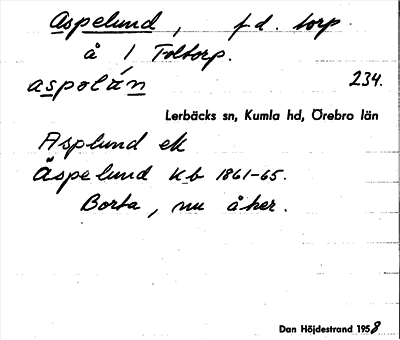 Aspelund, f d. torp
å 1 Toltorp.
aspolán 234.
Lerbäcks sn, Kumla hd, Örebro län
Asplund ek
Äspelund Kb 1861-65.
Borta, nu åker.
Dan Höjdestrand 1958